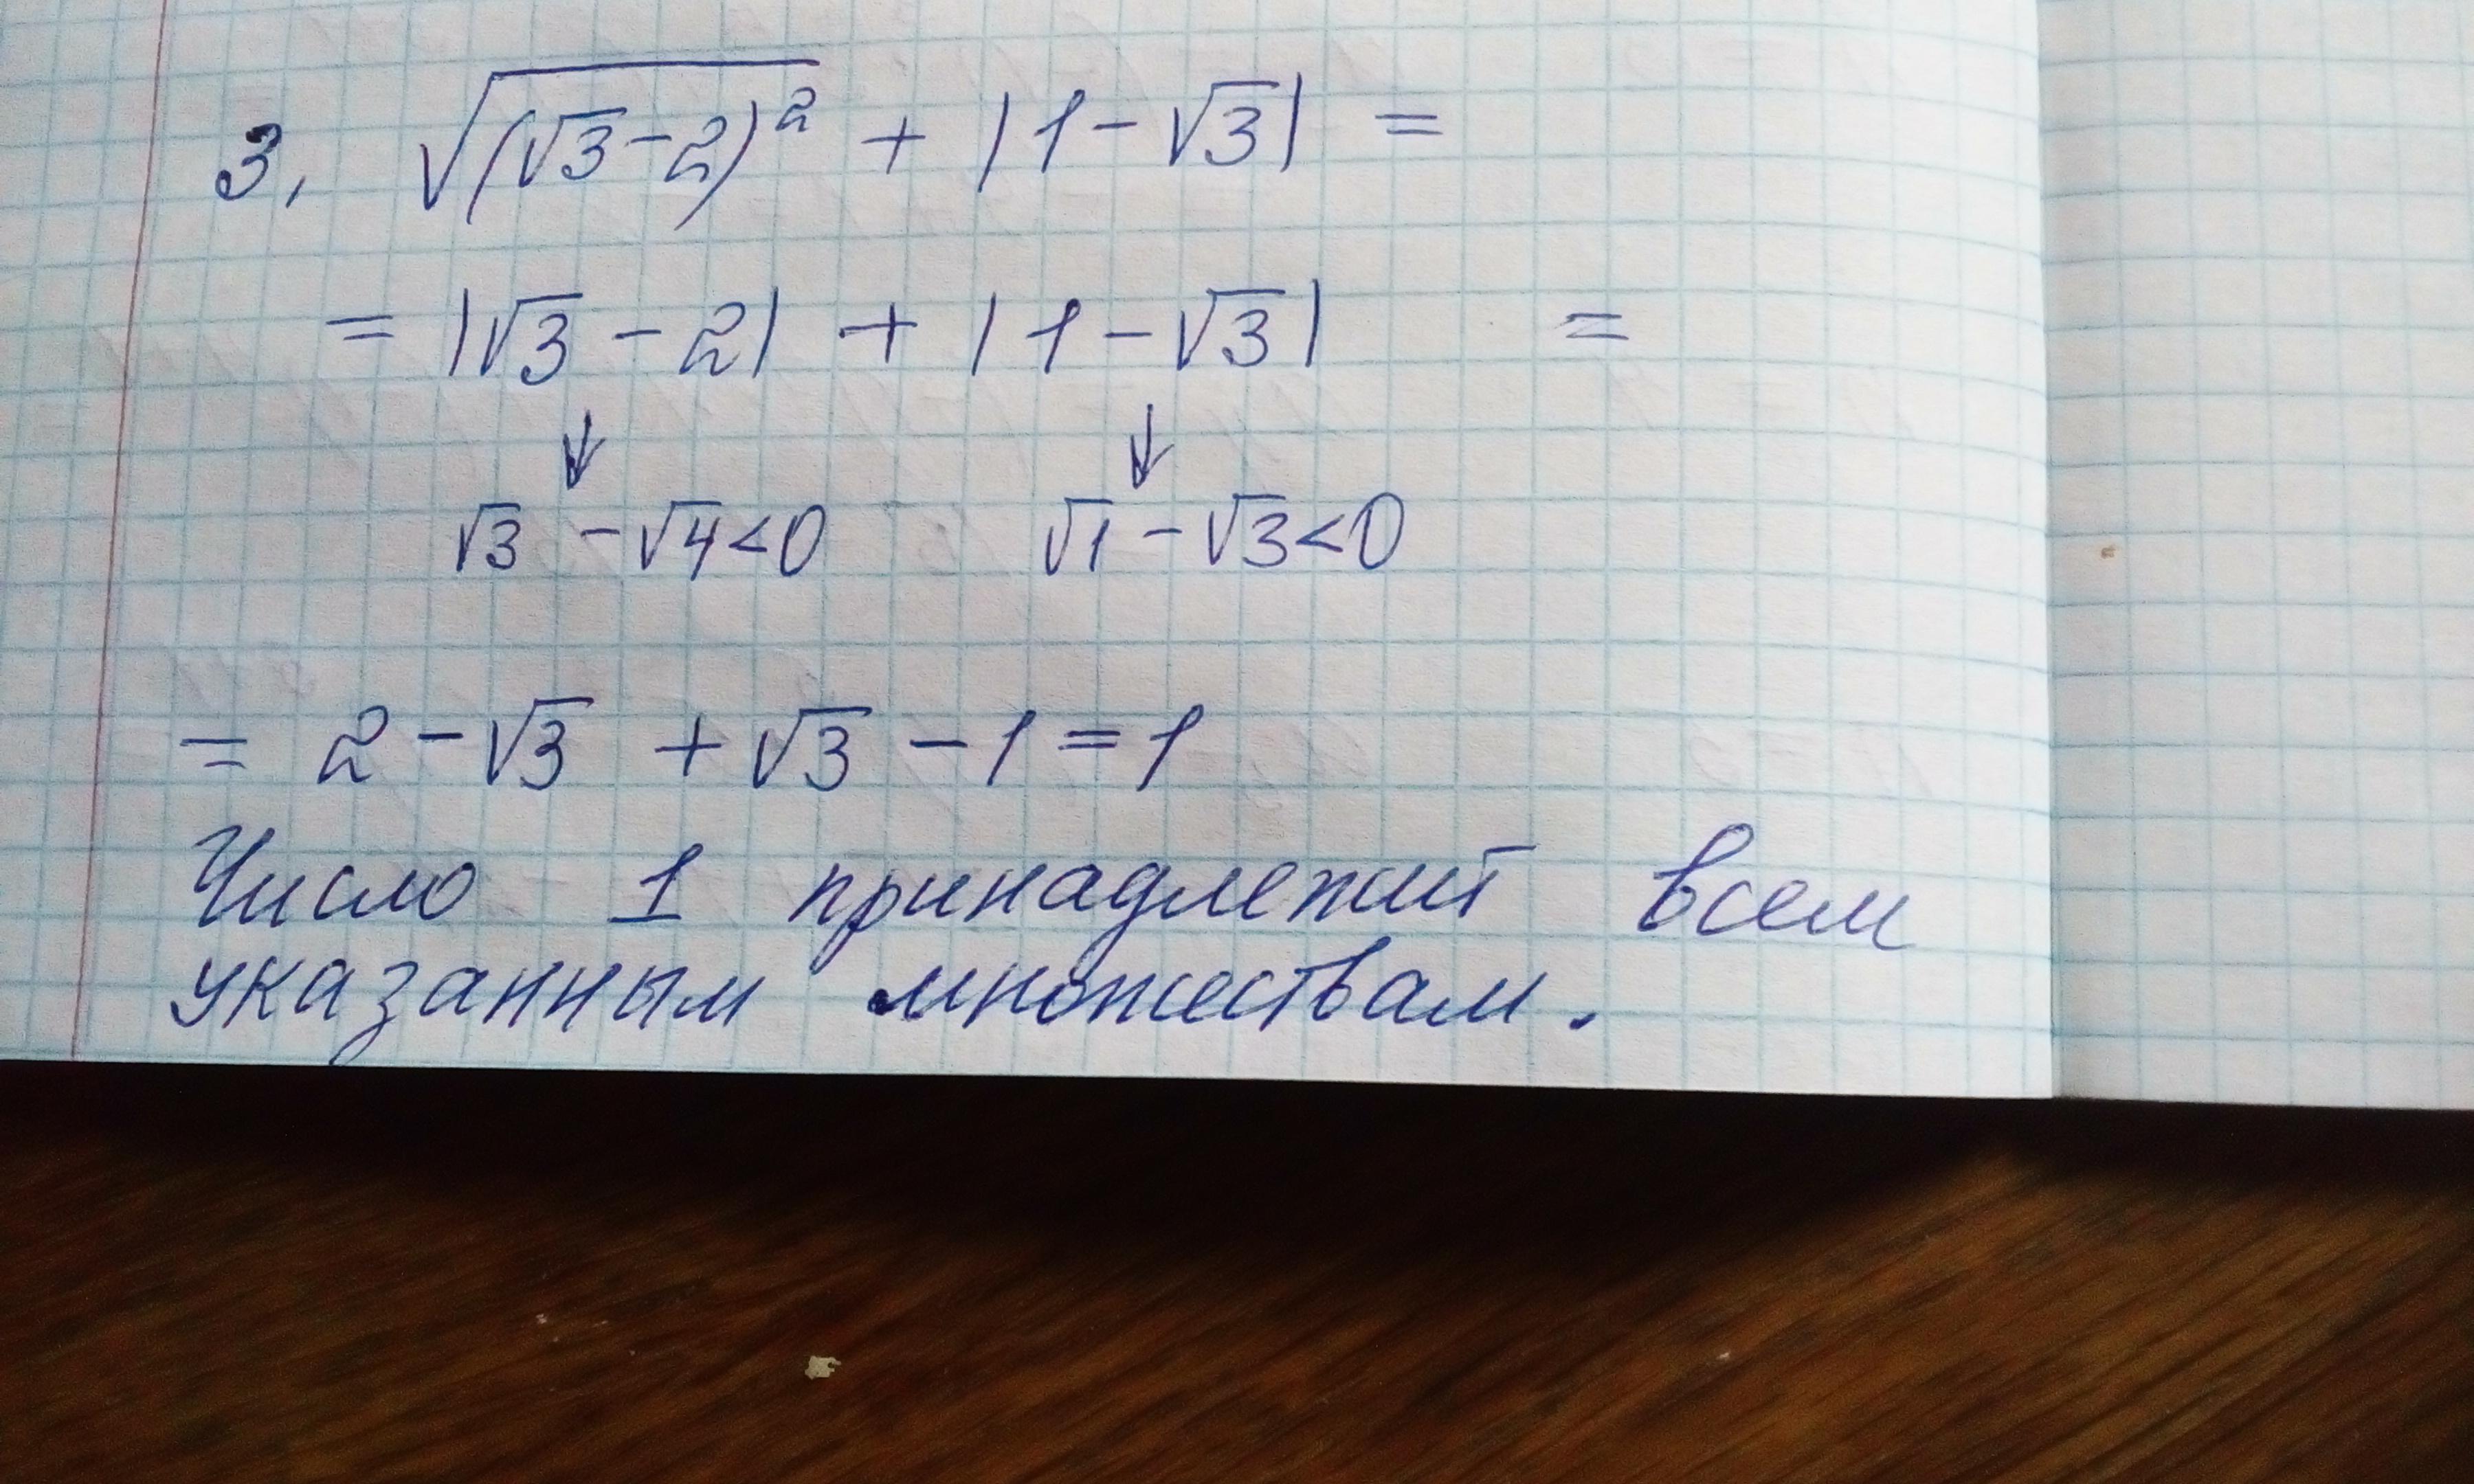 3. √(√3-2)² + |1-√3| =
= |√3-2| + |1-√3| =
↓ ↓
√3 -√4<0 √1-√3<0
= 2-√3 +√3-1=1
Число 1 принадлежит всем
указанным множествам.